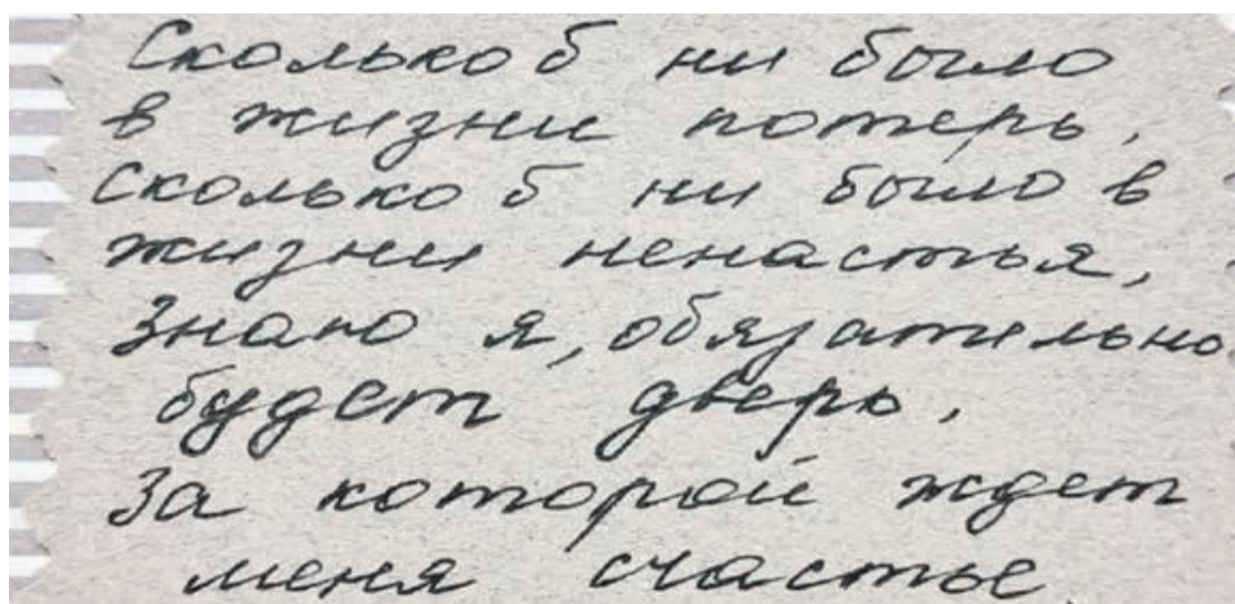 Сколько б ни было
в жизни потерь,
Сколько б ни было в
жизни ненастья,
Знаю я, обязательно
будет дверь,
За которой ждет
меня счастье.